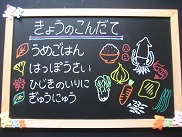 きょうのこんだて
うめごはん
はっぽうさい
ひじきのいりに
ぎゅうにゅう